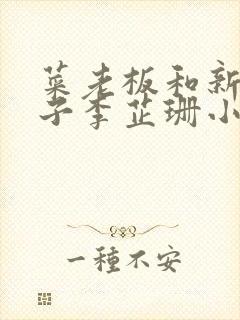 菜老板和新
子李芷珊小
一種不安